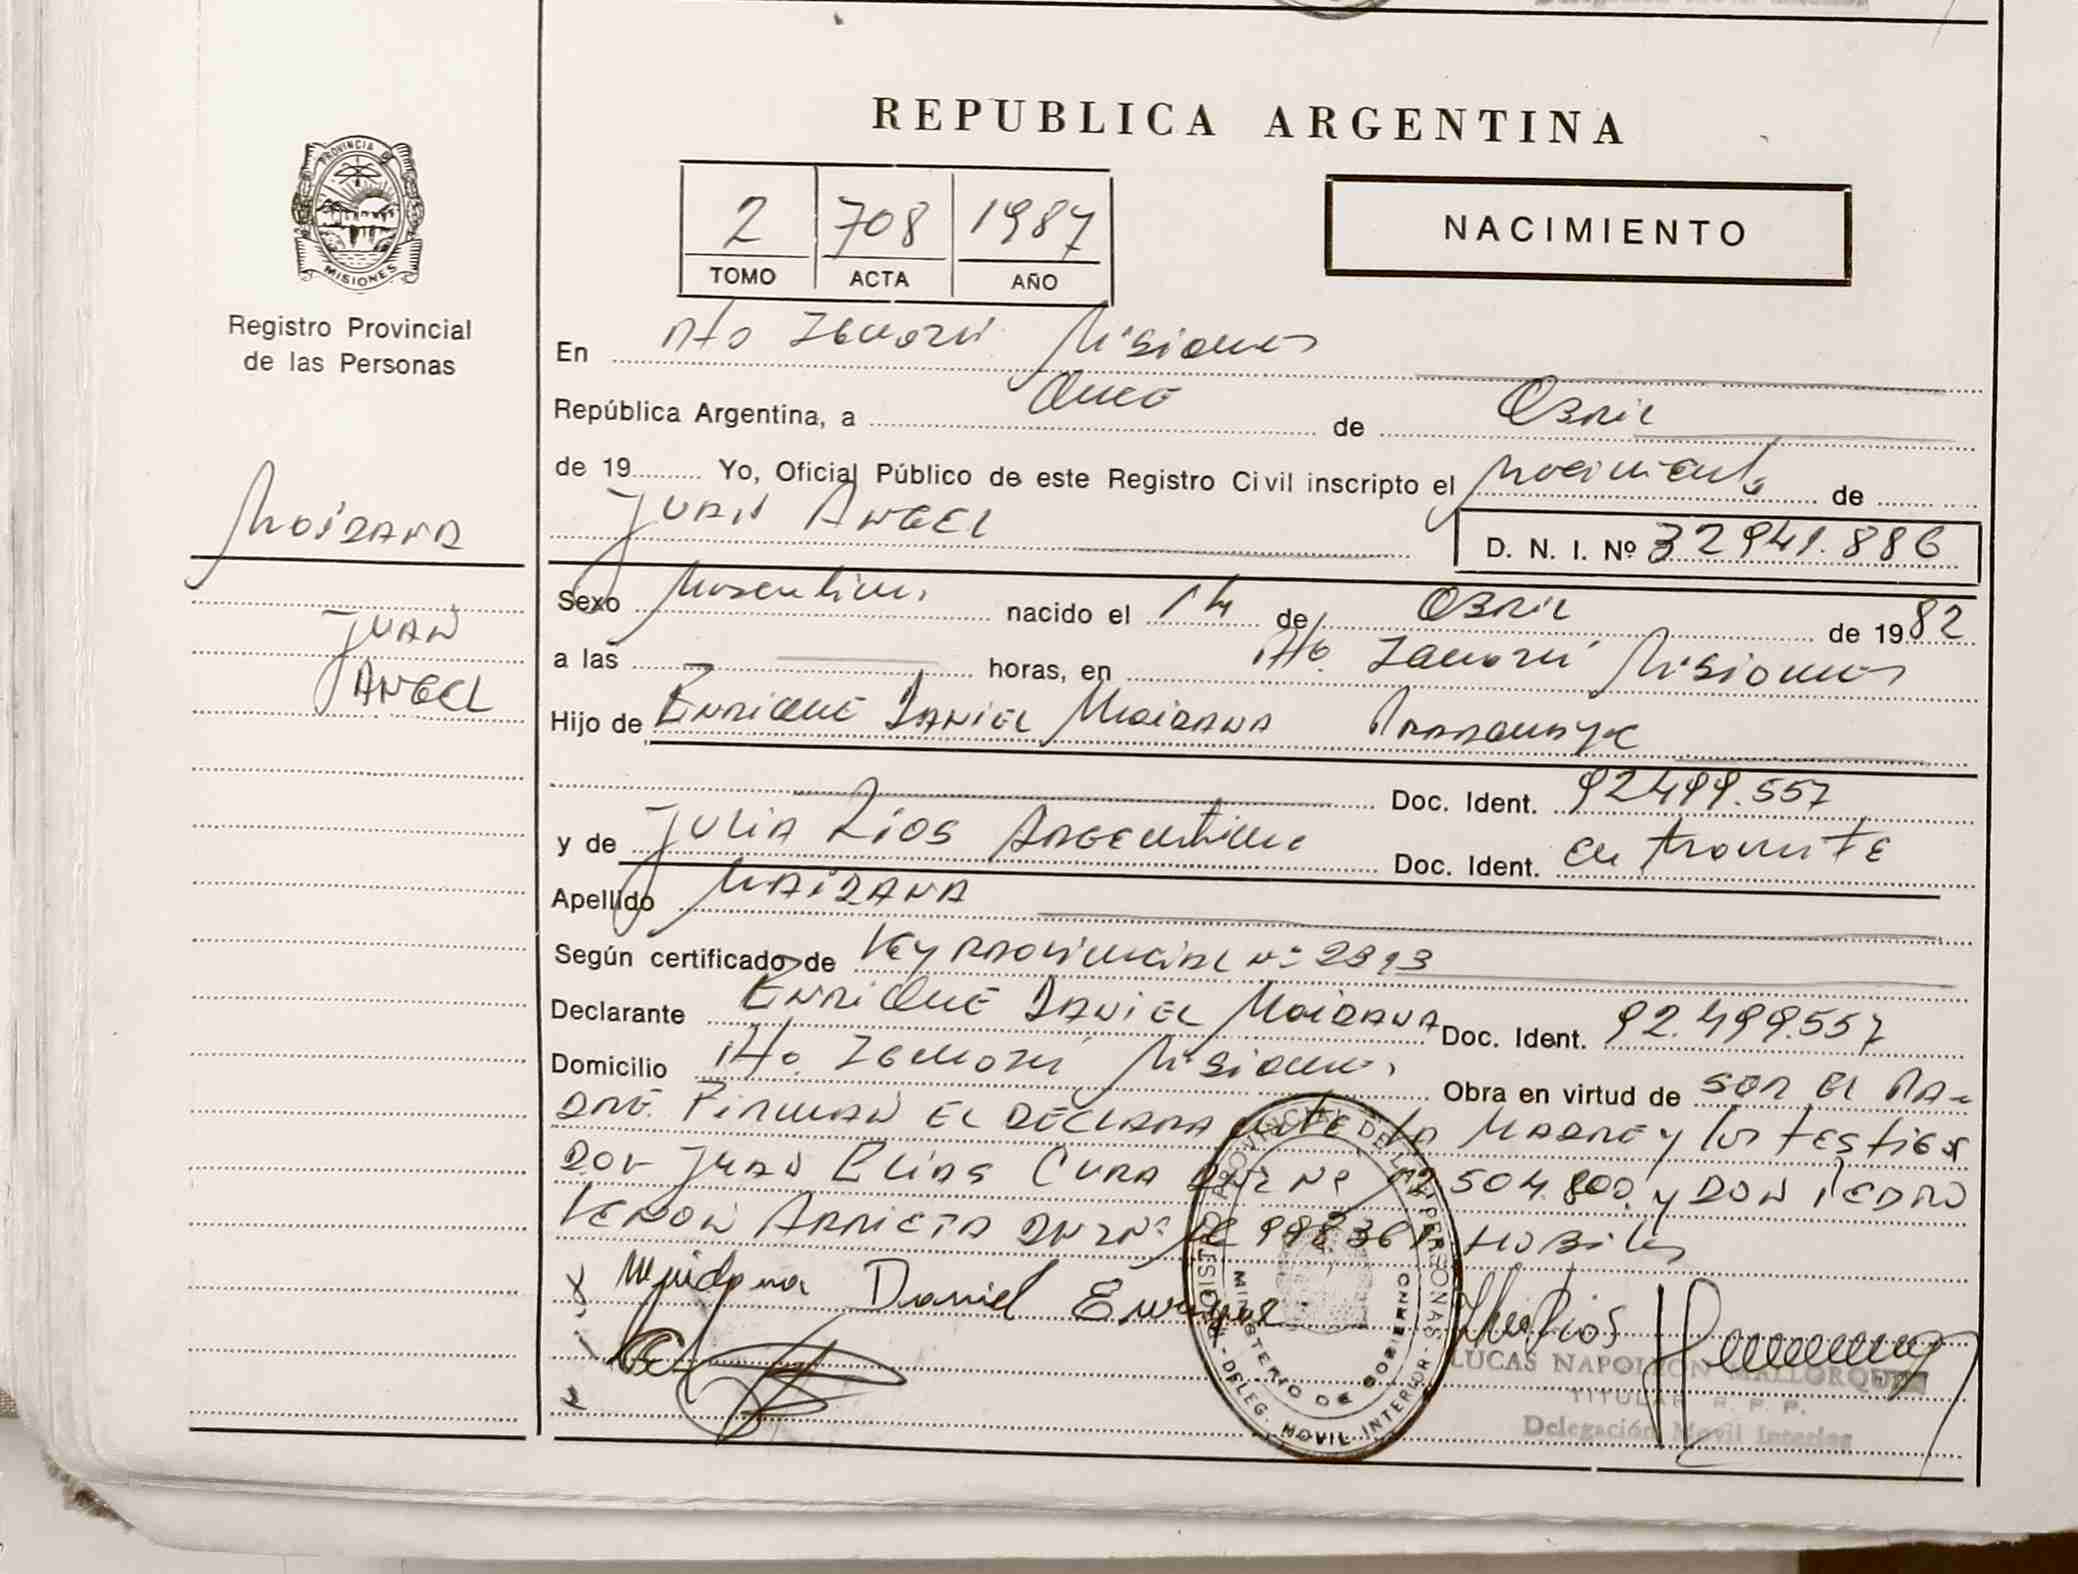 REPUBLICA ARGENTINA
PROVINCIA DE
MISIONES
Registro Provincial
de las Personas
2 708 1987
TOMO ACTA AÑO
NACIMIENTO
En Pto Misiones
República Argentina, a Once de Abril
de 19 Yo, Oficial Público de este Registro Civil inscripto el Nacimiento de
JUAN ANGEL
D. N. I. Nº 32941.886
Moidana
JUAN
ANGEL
Sexo Masculino nacido el 14 de Abril de 1982
a las horas, en Pto. Misiones
Hijo de ENRIQUE DANIEL MOIDANA Paraguayo
Doc. Ident. 92499.557
y de JULIA RIOS Argentina Doc. Ident. en tramite
Apellido MAIDANA
Según certificado de Ley Provincial Nº 2313
Declarante ENRIQUE DANIEL MOIDANA Doc. Ident. 92.499.557
Domicilio Pto. Misiones Obra en virtud de SER EL PA-
DRE. FIRMAN EL DECLARANTE LA MADRE y los testigos
DON JUAN ELIAS CURA DNI Nº 12504.800 y DON PEDRO
ARRIETA DNI Nº Hobiles
Daniel
REGISTRO PROVINCIAL DE LAS PERSONAS - DELEG. MOVIL INTERIOR -
MINISTERIO DE GOBIERNO
LUCAS NAPOLEON MALLORQUIN
TITULAR R. P. P.
Delegación Movil Interior